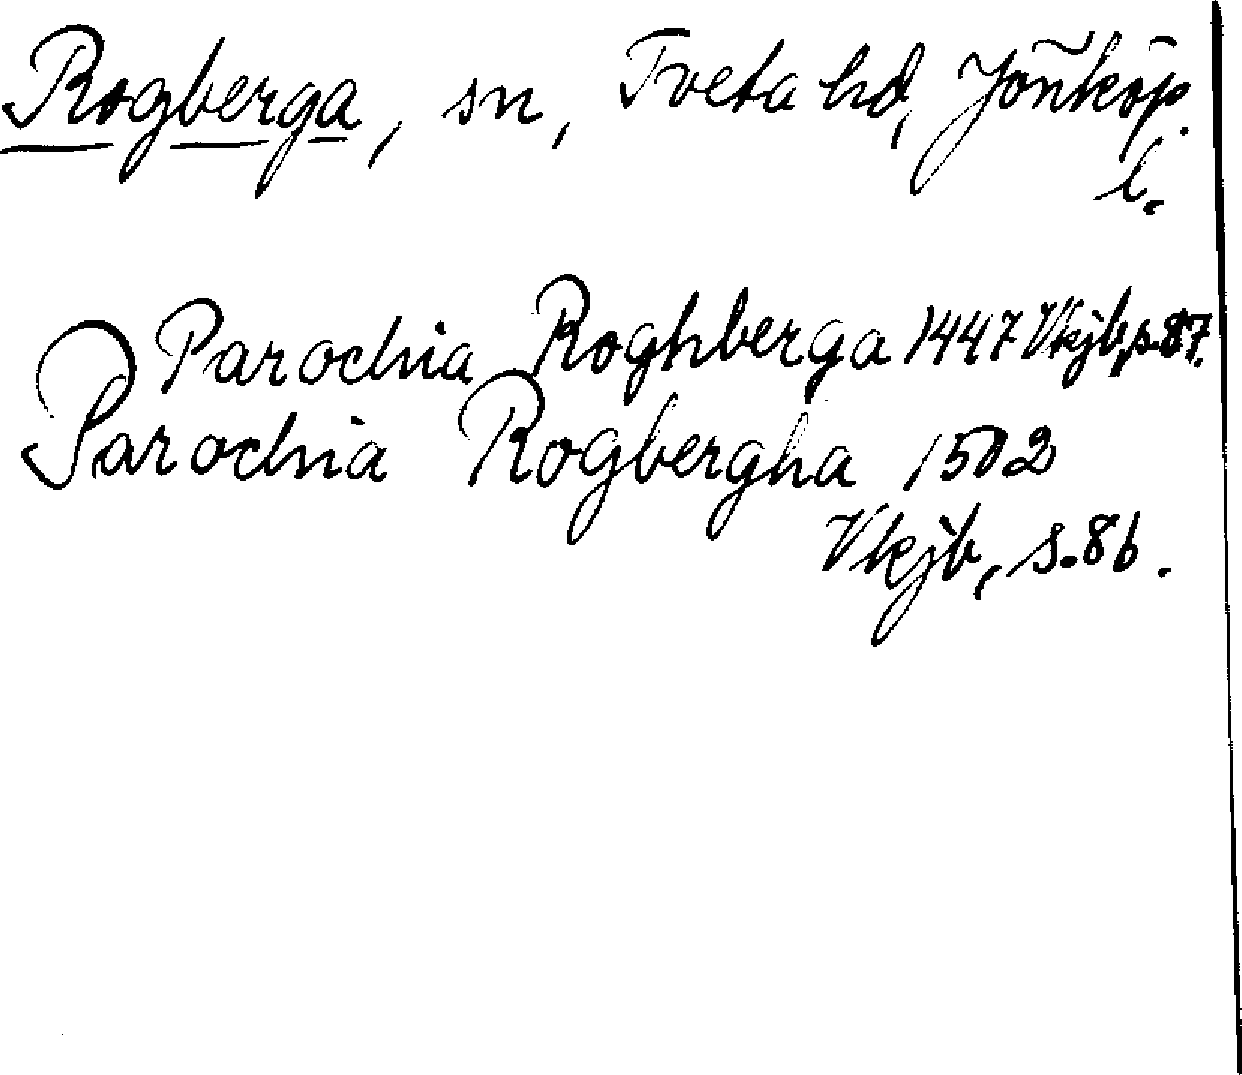 Rogberga, sn, Tveta hd, Jönköp.
l.
Parochia Roghberga 1447 Vkjb, s. 87.
Parochia Rogbergha 1502
Vkjb, s. 86.